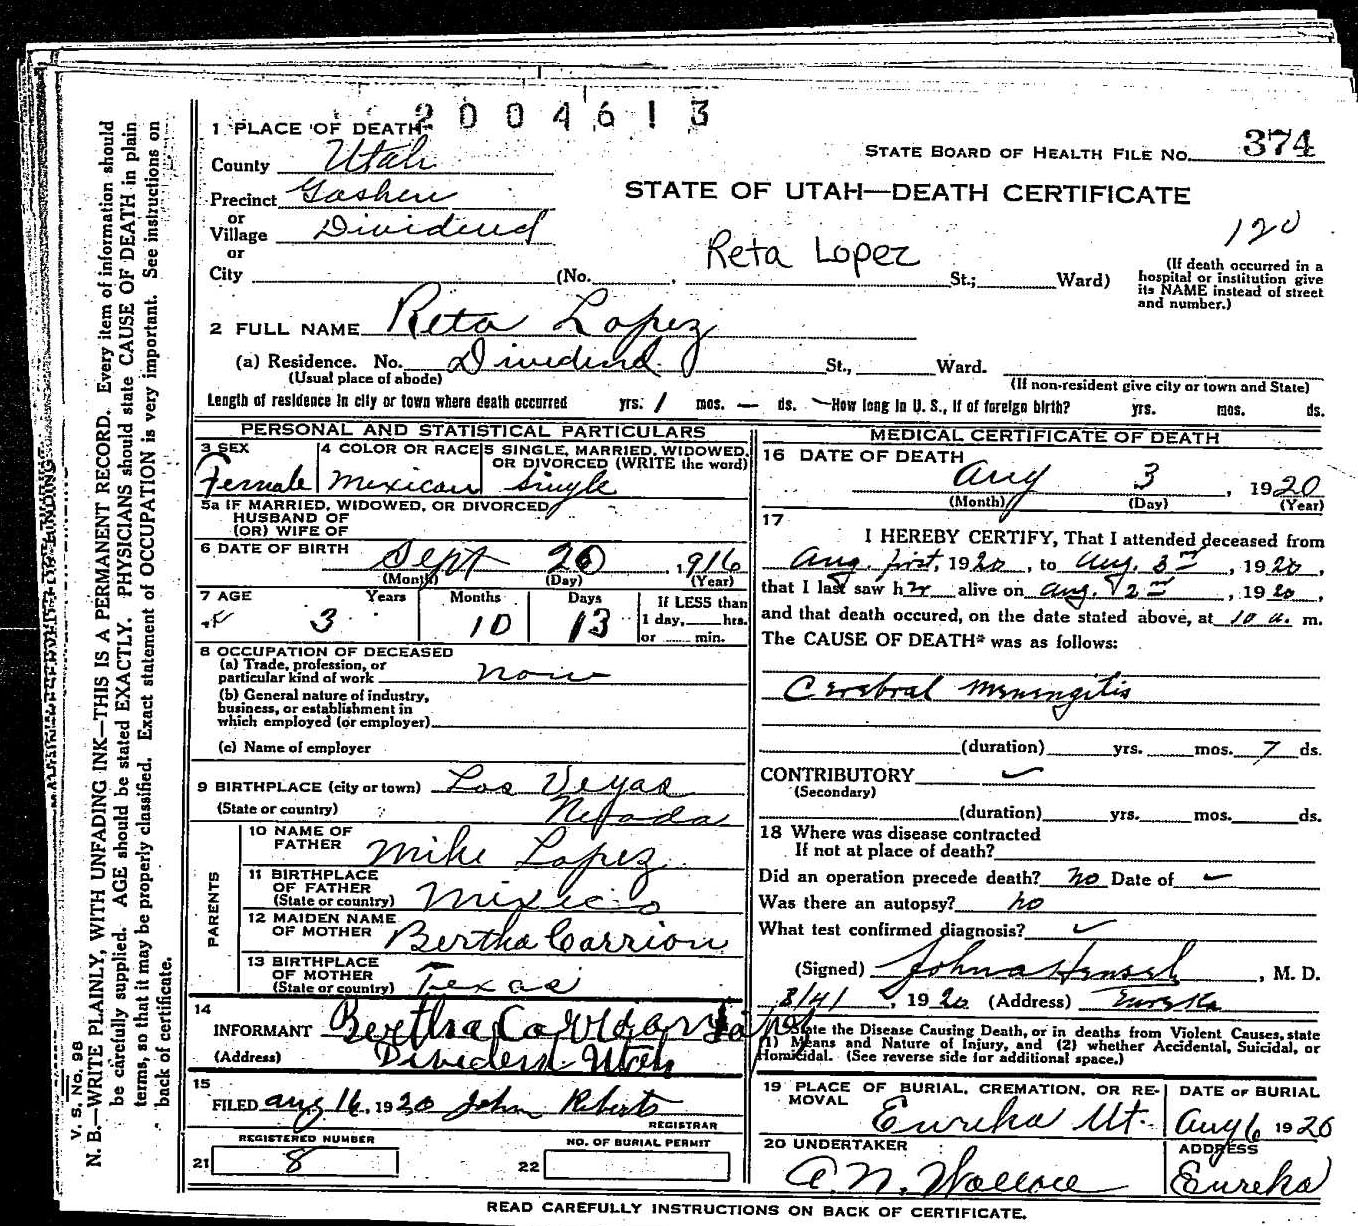 2004613
1 PLACE OF DEATH
County Utah
STATE BOARD OF HEALTH FILE NO. 374
Precinct Goshen
STATE OF UTAH—DEATH CERTIFICATE
or
Village Dividend
120
or
Reta Lopez
City (No. St.; Ward)
(If death occurred in a hospital or institution give its NAME instead of street and number.)
2 FULL NAME Reta Lopez
(a) Residence. No. Dividend St., Ward.
(Usual place of abode)
(If non-resident give city or town and State)
Length of residence in city or town where death occurred yrs. 1 mos. — ds. How long in U. S., if of foreign birth? yrs. mos. ds.
PERSONAL AND STATISTICAL PARTICULARS
3 SEX
Female
4 COLOR OR RACE
Mexican
5 SINGLE, MARRIED, WIDOWED, OR DIVORCED (WRITE the word)
Single
5a IF MARRIED, WIDOWED, OR DIVORCED
HUSBAND OF
(OR) WIFE OF
6 DATE OF BIRTH Sept 20, 1916
(Month) (Day) (Year)
7 AGE Years Months Days
3 10 13
If LESS than
1 day, hrs.
or min.
8 OCCUPATION OF DECEASED
(a) Trade, profession, or
particular kind of work none
(b) General nature of industry,
business, or establishment in
which employed (or employer)
(c) Name of employer
9 BIRTHPLACE (city or town) Las Vegas
(State or country) Nevada
PARENTS
10 NAME OF
FATHER Mike Lopez
11 BIRTHPLACE
OF FATHER
(State or country) Mixico
12 MAIDEN NAME
OF MOTHER Bertha Carrion
13 BIRTHPLACE
OF MOTHER
(State or country) Texas
14
INFORMANT Bertha
(Address) Dividend Utah
15
FILED Aug 16, 1920 John Roberts
REGISTRAR
REGISTERED NUMBER
21 8
NO. OF BURIAL PERMIT
22
MEDICAL CERTIFICATE OF DEATH
16 DATE OF DEATH
Aug 3, 1920
(Month) (Day) (Year)
17
I HEREBY CERTIFY, That I attended deceased from
Aug. first, 1920, to Aug. 3rd, 1920,
that I last saw her alive on Aug. 2nd, 1920,
and that death occured, on the date stated above, at 10 a. m.
The CAUSE OF DEATH* was as follows:
Cerebral meningitis
(duration) yrs. mos. 7 ds.
CONTRIBUTORY
(Secondary)
(duration) yrs. mos. ds.
18 Where was disease contracted
If not at place of death?
Did an operation precede death? no Date of
Was there an autopsy? no
What test confirmed diagnosis?
(Signed) John A Hensel, M. D.
8/4/, 1920 (Address) Eureka
State the Disease Causing Death, or in deaths from Violent Causes, state
(1) Means and Nature of Injury, and (2) whether Accidental, Suicidal, or
Homicidal. (See reverse side for additional space.)
19 PLACE OF BURIAL, CREMATION, OR REMOVAL
Eureka Ut.
DATE OF BURIAL
Aug 6 1920
20 UNDERTAKER
A. N. Wallace
ADDRESS
Eureka
READ CAREFULLY INSTRUCTIONS ON BACK OF CERTIFICATE.
V. S. No. 98
N. B.—WRITE PLAINLY, WITH UNFADING INK—THIS IS A PERMANENT RECORD. Every item of information should
be carefully supplied. AGE should be stated EXACTLY. PHYSICIANS should state CAUSE OF DEATH in plain
terms, so that it may be properly classified. Exact statement of OCCUPATION is very important. See instructions on
back of certificate.